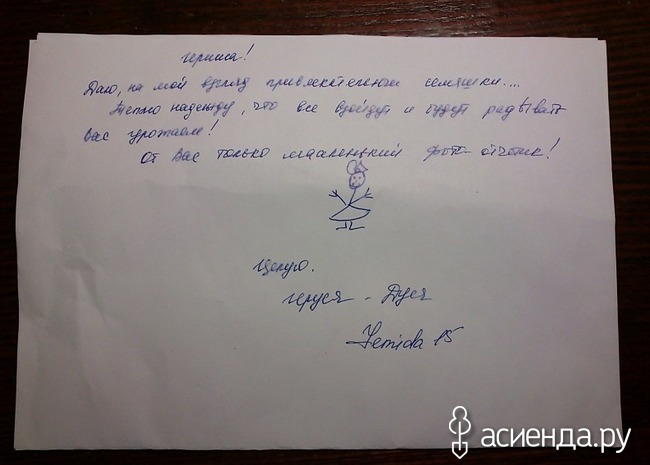 Даю, на мой взгляд привлекательные семяшки....
надежду, что все взойдут и будут радовать
вас урожаем!
От Вас только мааленький фото-отчётик!
Целую.
Дуся
Femida 15
асиенда.ру